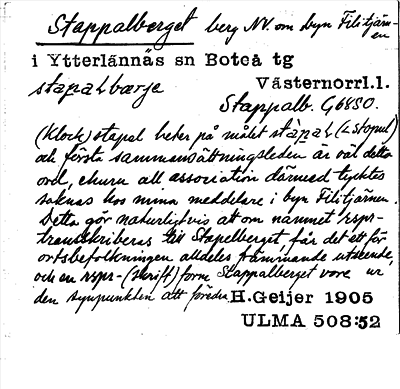 Stappalberget berg NV. om byn Filitjärn-
en
i Ytterlännäs sn Boteå tg
stapalbærje Västernorrl.l.
Stappalb. G6850.
(Klock) stapal heter på målet stàpal (<stopul)
och första sammansättningsleden är väl detta
ord, ehuru all association därmed tycktes
saknas hos mina meddelare i byn Filitjärnen.
Detta gör naturligtvis att om namnet rspr-
transkriberas till Stapelberget, får det ett för
ortsbefolkningen alldeles främmande utseende,
och en rspr-(skrift)form Stappalberget vore ur
den synpunkten att föredra. H.Geijer 1905
ULMA 508:52